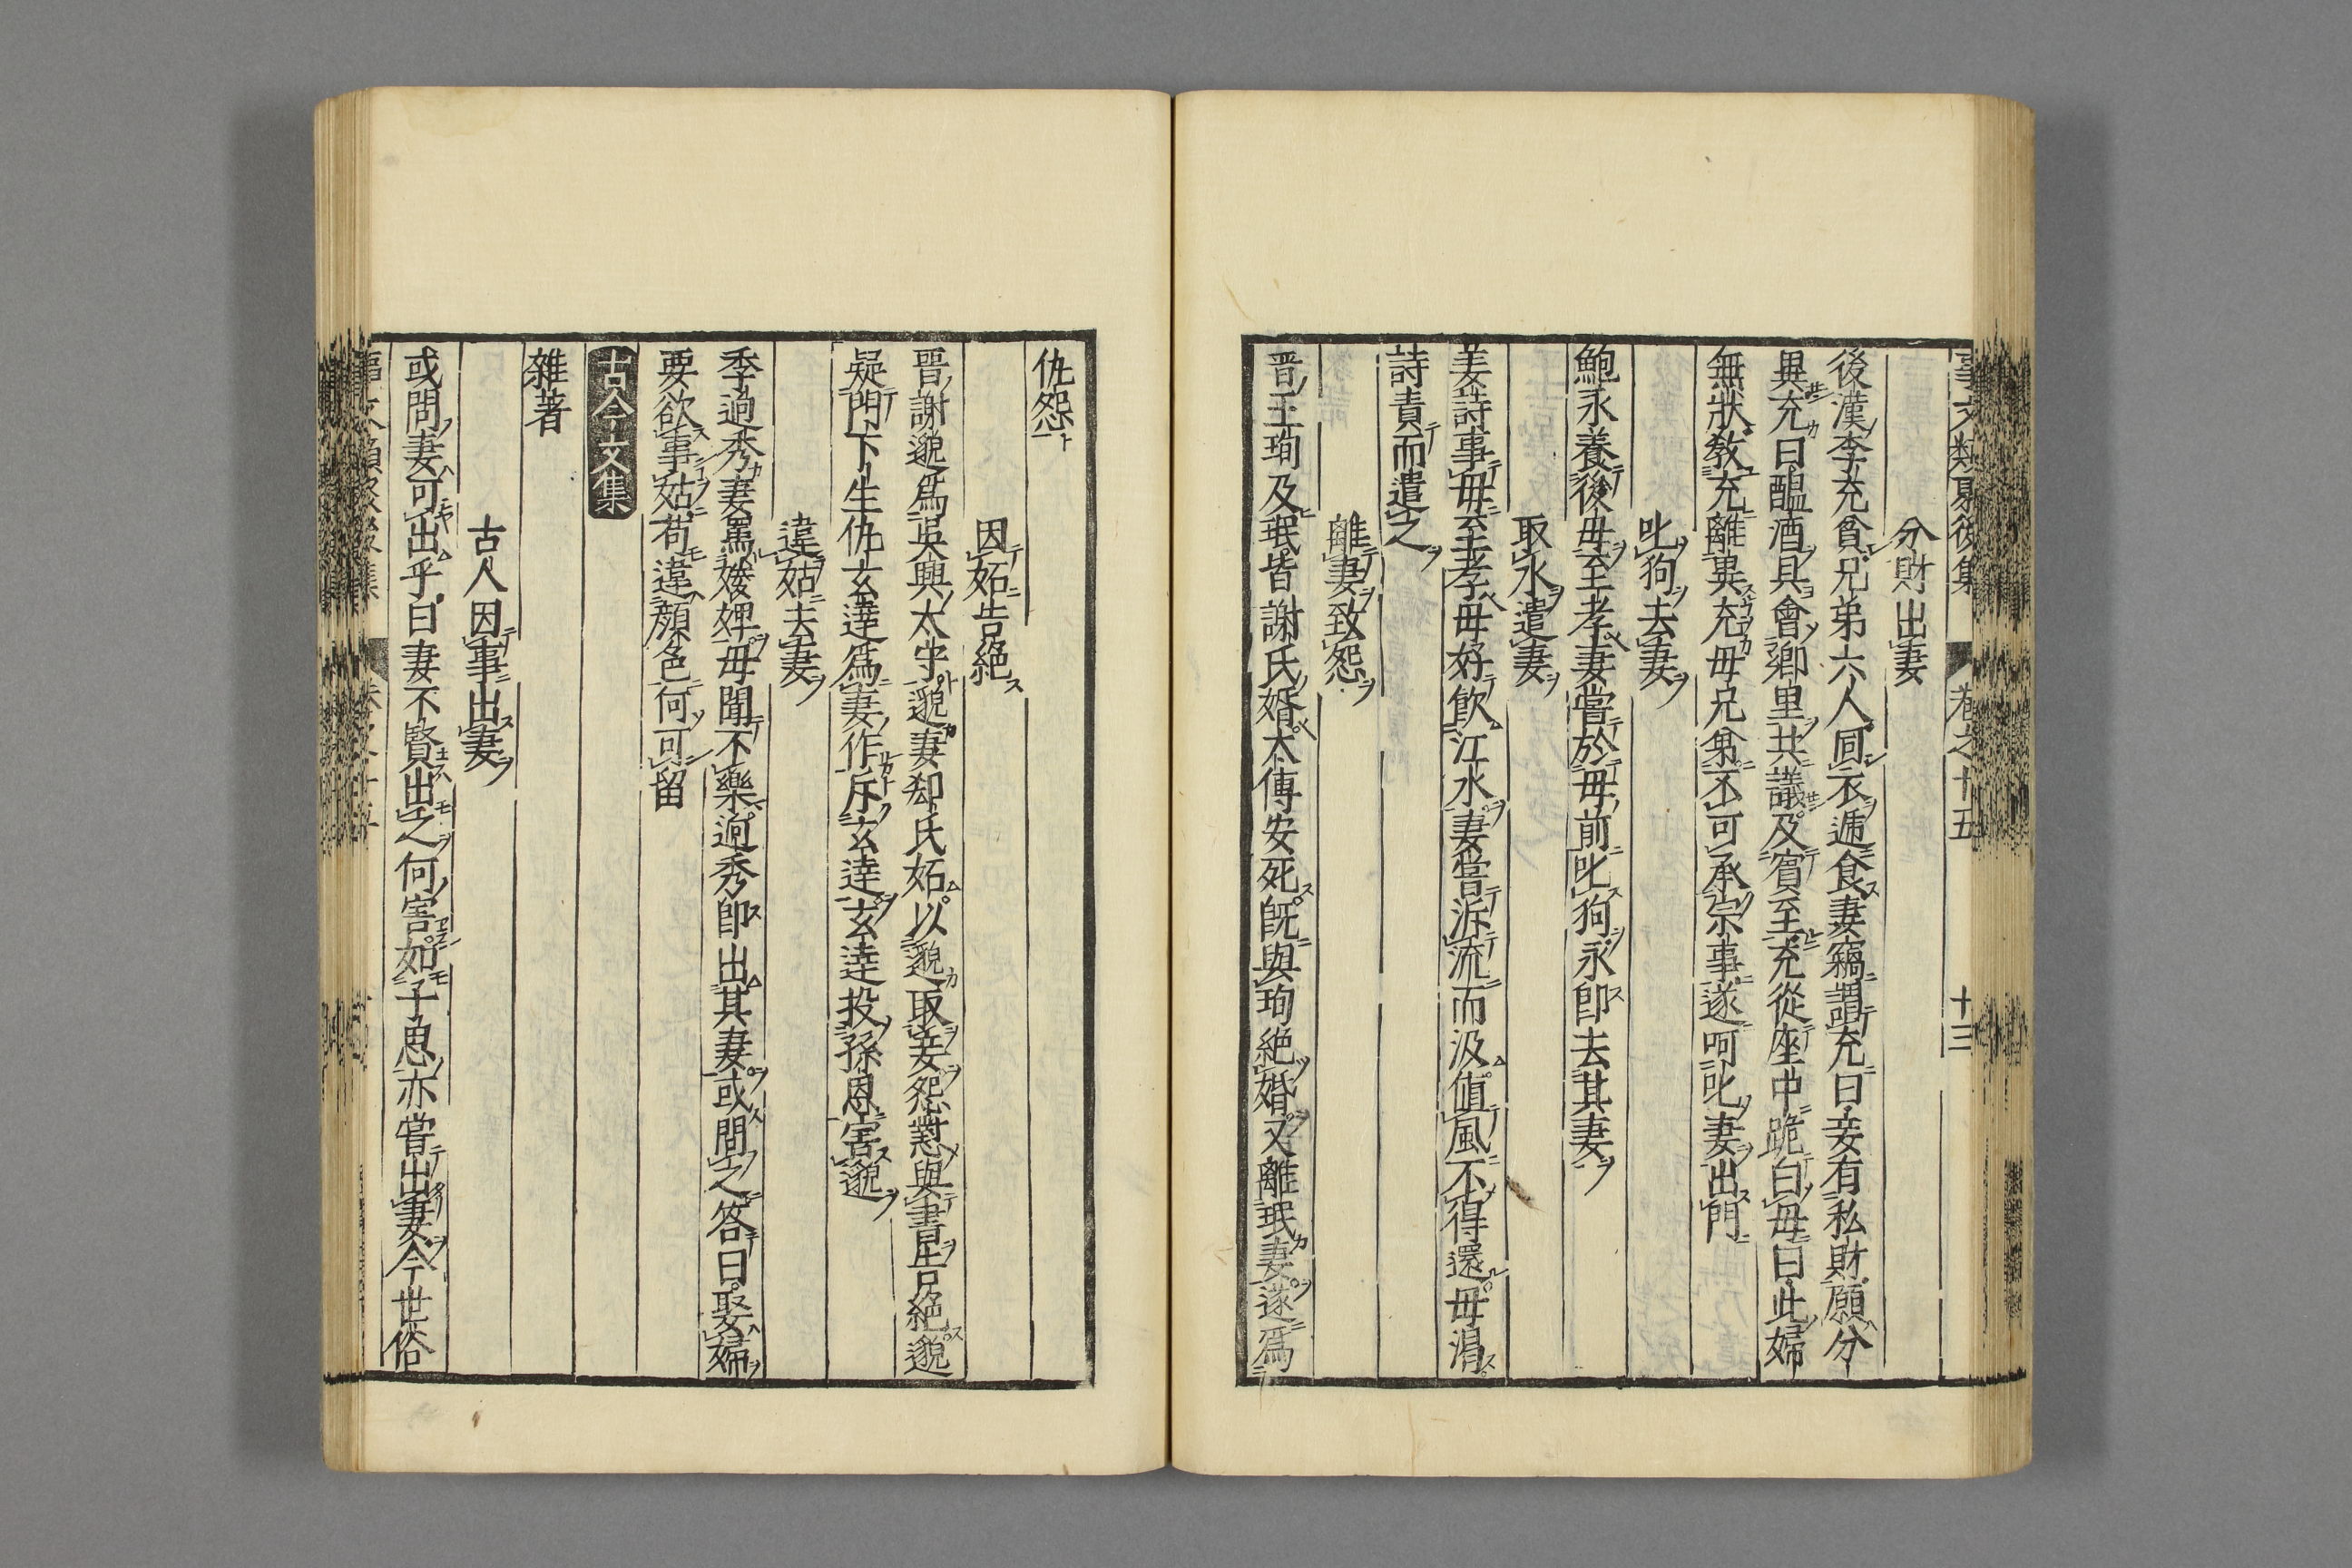 事文類聚後集 卷之十五 十三
分財出妻
後漢李充貧兄弟六人同衣逓食妻竊謂充曰妾有私財願分
異充曰醞酒具會鄉里共議及賓至充從座中跪白母曰此婦
無狀敎充離異充母兄弟不可承宗事遂呵叱妻出門
叱狗去妻
鮑永養後母至孝妻嘗於母前叱狗永即去其妻
取水遣妻
姜詩事母至孝母好飲江水妻嘗泝流而汲値風不得還母渴
詩責而遣之
離妻致怨
晋王珣及珉皆謝氏婿太傅安死既與珣絶婚又離珉妻遂爲
仇怨
因妬告絶
晋謝邈爲吳興太守邈妻郄氏妬以邈取妾怨懟與書告絶邈
疑門下生仇玄達爲妻作斥玄達玄達投孫恩害邈
違姑去妻
季逈秀妻罵媵婢母聞不樂逈秀即出其妻或問之答曰娶婦
要欲事姑苟違顏色何可留
古今文集
雜著
古人因事出妻
或問妻可出乎曰妻不賢出之何害如子思亦嘗出妻今世俗